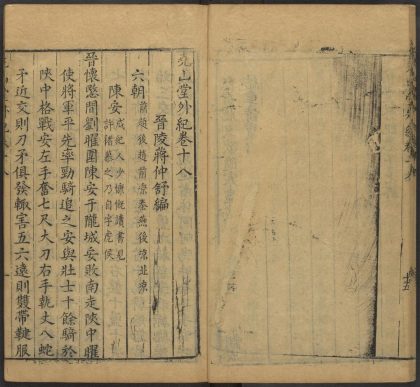 堯山堂外紀卷十八
晉陵蔣仲舒編
六朝 前趙後趙前燕秦燕後涼北涼
陳安 成紀人少慷慨讀書見
許褚慕之乃自字虎侯
晉懷愍間劉曜圍陳安于隴城安敗南走陝中曜
使將軍平先率勁騎追之安與壯士十餘騎於
陝中格戰安左手奮七尺大刀右手執丈八蛇
矛近交則刀矛俱發輙害五六遠則雙帶鞬服